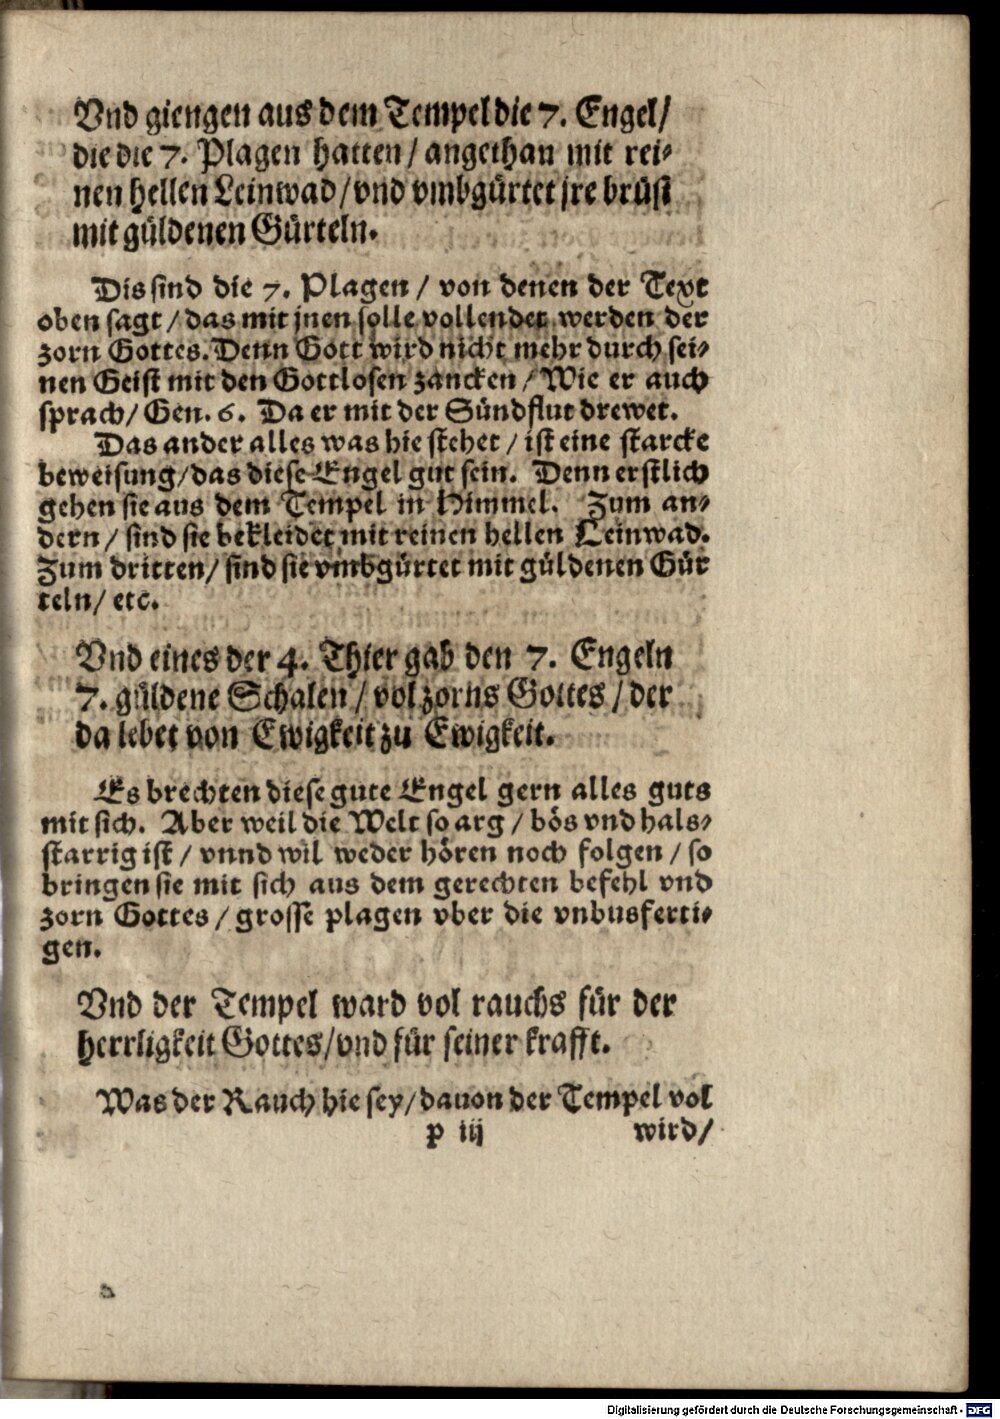 Vnd giengen aus dem Tempel die 7. Engel/
die die 7. Plagen hatten/ angethan mit rei-
nen hellen Leinwad/ vnd vmbgürtet jre brüst
mit güldenen Gürteln.
Dis sind die 7. Plagen/ von denen der Text
oben sagt/ das mit jnen solle vollendet werden der
zorn Gottes. Denn Gott wird nicht mehr durch sei-
nen Geist mit den Gottlosen zancken/ Wie er auch
sprach/ Gen. 6. Da er mit der Sündflut drewet.
Das ander alles was hie stehet/ ist eine starcke
beweisung/ das diese Engel gut sein. Denn erstlich
gehen sie aus dem Tempel in Himmel. Zum an-
dern/ sind sie bekleidet mit reinen hellen Leinwad.
Zum dritten/ sind sie vmbgürtet mit güldenen Gür
teln/ etc.
Vnd eines der 4. Thier gab den 7. Engeln
7. güldene Schalen/ vol zorns Gottes/ der
da lebet von Ewigkeit zu Ewigkeit.
Es brechten diese gute Engel gern alles guts
mit sich. Aber weil die Welt so arg/ bös vnd hals-
starrig ist/ vnnd wil weder hören noch folgen/ so
bringen sie mit sich aus dem gerechten befehl vnd
zorn Gottes/ grosse plagen vber die vnbusferti-
gen.
Vnd der Tempel ward vol rauchs für der
herrligkeit Gottes/ vnd für seiner krafft.
Was der Rauch hie sey/ dauon der Tempel vol
p iij wird/
Digitalisierung gefördert durch die Deutsche Forschungsgemeinschaft - DFG